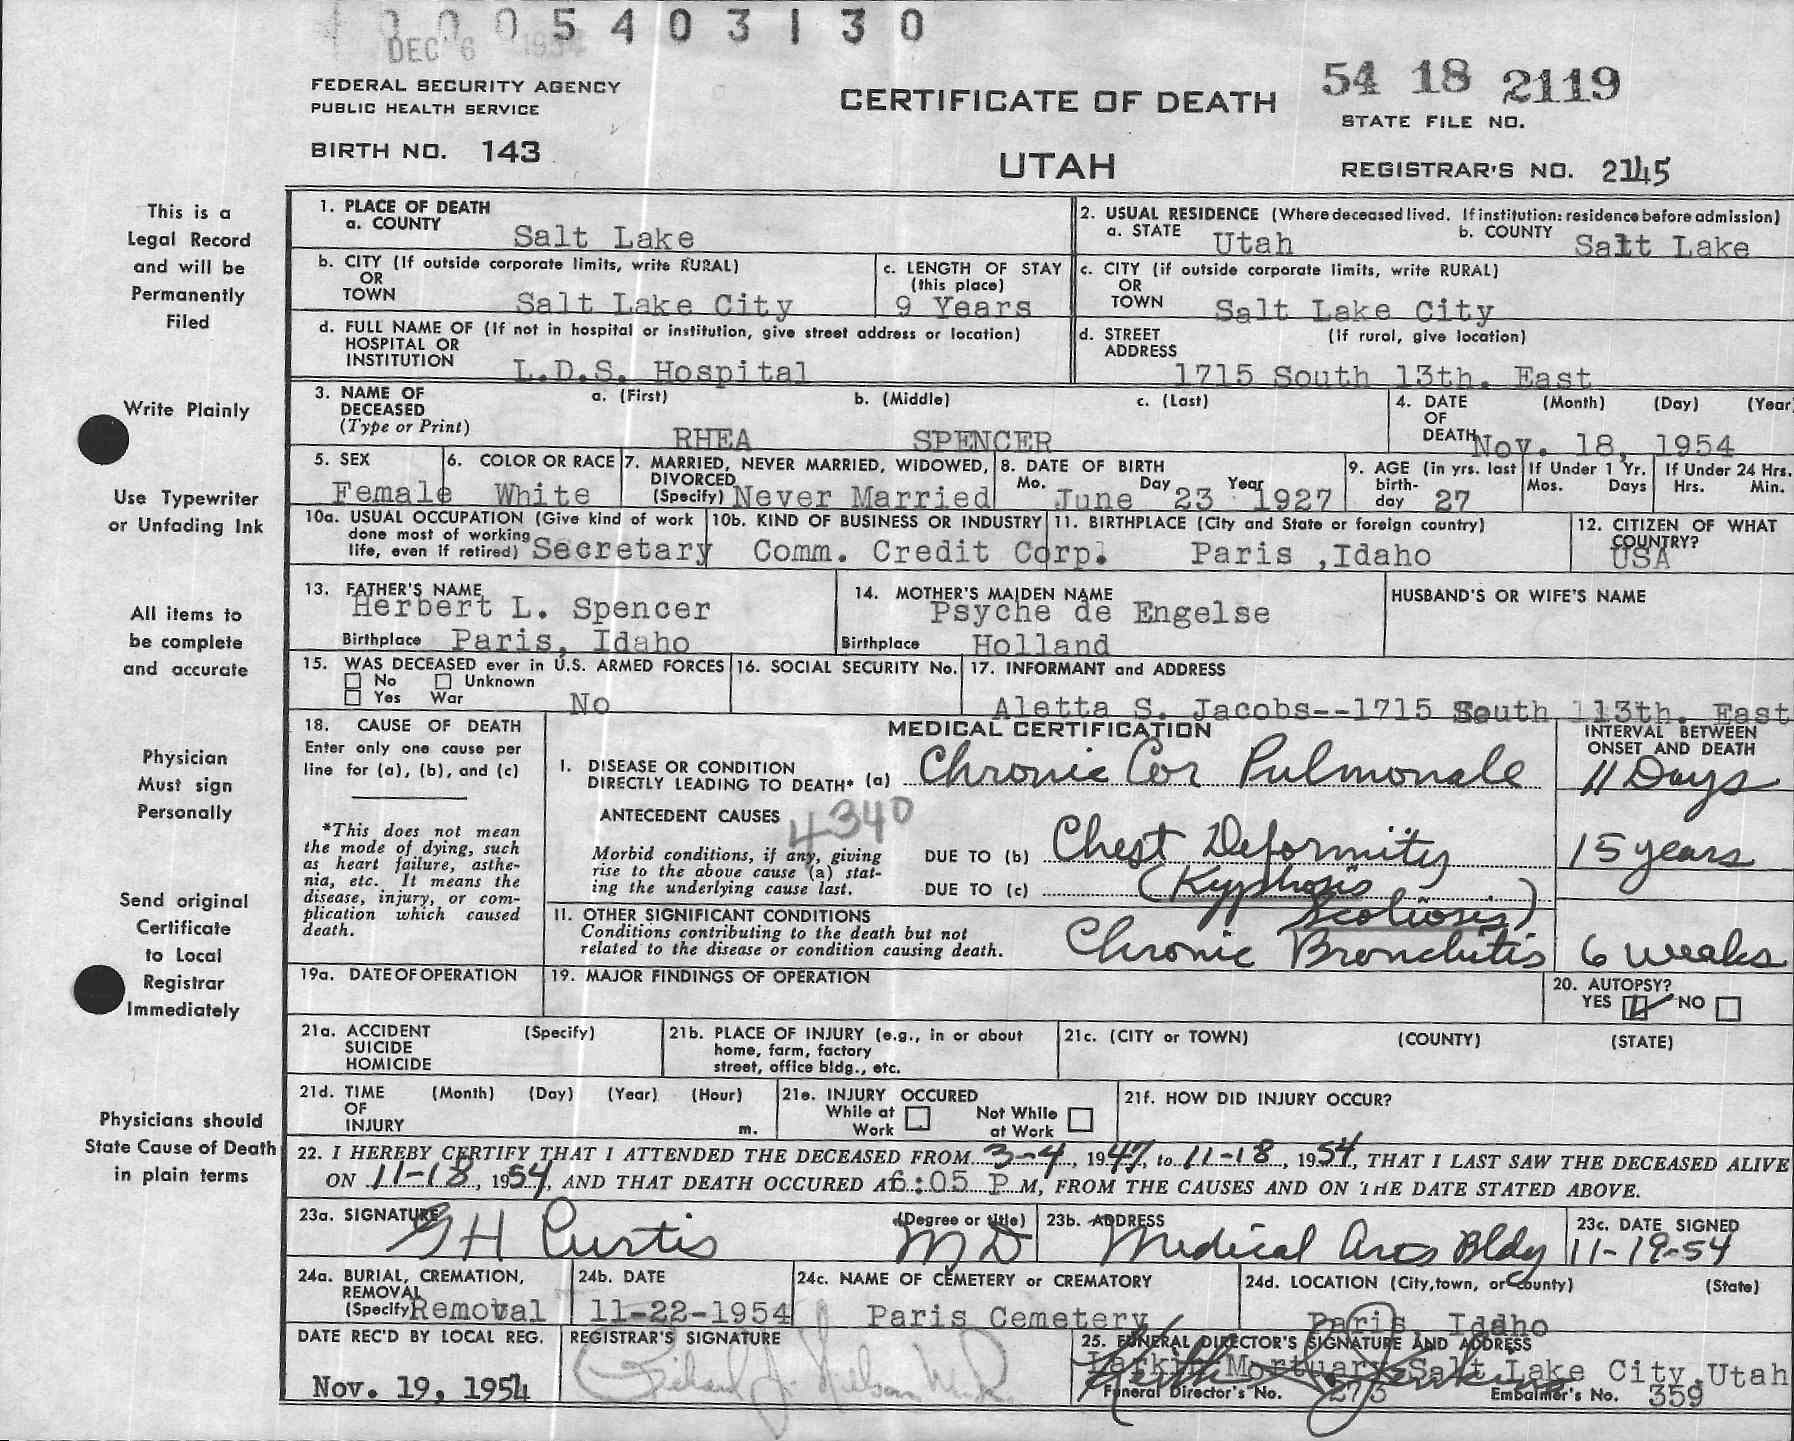 0005403130
DEC 6 1954
FEDERAL SECURITY AGENCY
PUBLIC HEALTH SERVICE
BIRTH NO. 143
CERTIFICATE OF DEATH
UTAH
54 18 2119
STATE FILE NO.
REGISTRAR'S NO. 2145
This is a
Legal Record
and will be
Permanently
Filed
Write Plainly
Use Typewriter
or Unfading Ink
All items to
be complete
and accurate
Physician
Must sign
Personally
Send original
Certificate
to Local
Registrar
Immediately
Physicians should
State Cause of Death
in plain terms
1. PLACE OF DEATH
a. COUNTY Salt Lake
2. USUAL RESIDENCE (Where deceased lived. If institution: residence before admission)
a. STATE Utah b. COUNTY Salt Lake
b. CITY (If outside corporate limits, write RURAL)
OR
TOWN Salt Lake City
c. LENGTH OF STAY
(this place)
9 Years
c. CITY (if outside corporate limits, write RURAL)
OR
TOWN Salt Lake City
d. FULL NAME OF (If not in hospital or institution, give street address or location)
HOSPITAL OR
INSTITUTION L.D.S. Hospital
d. STREET (if rural, give location)
ADDRESS
1715 South 13th. East
3. NAME OF a. (First) b. (Middle) c. (Last)
DECEASED
(Type or Print) RHEA SPENCER
4. DATE (Month) (Day) (Year
OF
DEATH Nov. 18, 1954
5. SEX
Female
6. COLOR OR RACE
White
7. MARRIED, NEVER MARRIED, WIDOWED,
DIVORCED
(Specify) Never Married
8. DATE OF BIRTH
Mo. Day Year
June 23 1927
9. AGE (in yrs. last
birth-
day 27
If Under 1 Yr.
Mos. Days
If Under 24 Hrs.
Hrs. Min.
10a. USUAL OCCUPATION (Give kind of work
done most of working
life, even if retired) Secretary
10b. KIND OF BUSINESS OR INDUSTRY
Comm. Credit Corp.
11. BIRTHPLACE (City and State or foreign country)
Paris ,Idaho
12. CITIZEN OF WHAT
COUNTRY?
USA
13. FATHER'S NAME
Herbert L. Spencer
Birthplace Paris, Idaho
14. MOTHER'S MAIDEN NAME
Psyche de Engelse
Birthplace Holland
HUSBAND'S OR WIFE'S NAME
15. WAS DECEASED ever in U.S. ARMED FORCES
No Unknown
Yes War No
16. SOCIAL SECURITY No.
17. INFORMANT and ADDRESS
Aletta S. Jacobs--1715 South 13th. East
18. CAUSE OF DEATH
Enter only one cause per
line for (a), (b), and (c)
*This does not mean
the mode of dying, such
as heart failure, asthe-
nia, etc. It means the
disease, injury, or com-
plication which caused
death.
MEDICAL CERTIFICATION
INTERVAL BETWEEN
ONSET AND DEATH
I. DISEASE OR CONDITION
DIRECTLY LEADING TO DEATH* (a) Chronic Cor Pulmonale 11 Days
ANTECEDENT CAUSES
4340
Morbid conditions, if any, giving
rise to the above cause (a) stat-
ing the underlying cause last.
DUE TO (b) Chest Deformity 15 years
DUE TO (c) (Kyphosis
Scoliosis)
II. OTHER SIGNIFICANT CONDITIONS
Conditions contributing to the death but not
related to the disease or condition causing death.
Chronic Bronchitis 6 weeks
19a. DATE OF OPERATION
19. MAJOR FINDINGS OF OPERATION
20. AUTOPSY?
YES NO
21a. ACCIDENT (Specify)
SUICIDE
HOMICIDE
21b. PLACE OF INJURY (e.g., in or about
home, farm, factory
street, office bldg., etc.
21c. (CITY or TOWN) (COUNTY) (STATE)
21d. TIME (Month) (Day) (Year) (Hour)
OF
INJURY m.
21e. INJURY OCCURED
While at Not While
Work at Work
21f. HOW DID INJURY OCCUR?
22. I HEREBY CERTIFY THAT I ATTENDED THE DECEASED FROM 3-4, 1947, to 11-18, 1954, THAT I LAST SAW THE DECEASED ALIVE
ON 11-18, 1954, AND THAT DEATH OCCURED AT 6:05 P M, FROM THE CAUSES AND ON THE DATE STATED ABOVE.
23a. SIGNATURE (Degree or title)
GH Curtis MD
23b. ADDRESS
Medical Arts Bldg
23c. DATE SIGNED
11-19-54
24a. BURIAL, CREMATION,
REMOVAL
(Specify) Removal
24b. DATE
11-22-1954
24c. NAME OF CEMETERY or CREMATORY
Paris Cemetery
24d. LOCATION (City, town, or County) (State)
Paris, Idaho
DATE REC'D BY LOCAL REG.
Nov. 19, 1954
REGISTRAR'S SIGNATURE
25. FUNERAL DIRECTOR'S SIGNATURE AND ADDRESS
Larkin Mortuary Salt Lake City, Utah
Funeral Director's No. 273 Embalmer's No. 359